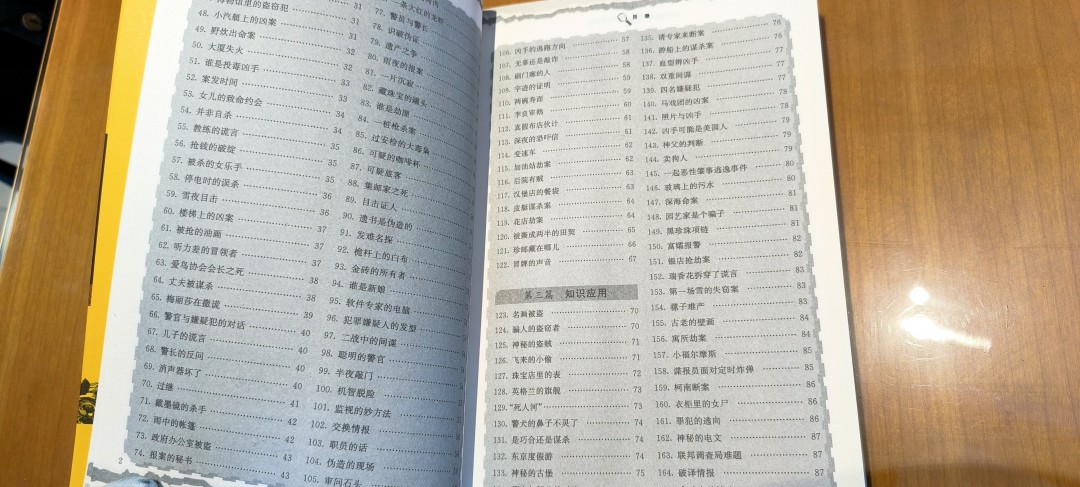 48. 小汽艇上的凶案 31
49. 野炊出命案 32
50. 大厦失火 32
51. 谁是投毒凶手 33
52. 案发时间 33
53. 女儿的致命约会 34
54. 并非自杀 34
55. 教练的谎言 35
56. 抢钱的破绽 35
57. 被杀的女乐手 35
58. 停电时的误杀 36
59. 雪夜目击 36
60. 楼梯上的凶案 37
61. 被抢的油画 37
62. 听力差的冒领者 37
63. 爱鸟协会会长之死 38
64. 丈夫被谋杀 38
65. 梅丽莎在撒谎 39
66. 警官与嫌疑犯的对话 40
67. 儿子的谎言 40
68. 警长的反问 40
69. 消声器坏了 40
70. 过继 41
71. 戴墨镜的杀手 42
72. 雨中的帐篷 42
73. 政府办公室被盗 43
74. 报案的秘书 43
2
77. 警员与警长
78. 识破伪证
79. 遗产之争
80. 雨夜的报案
81. 一片沉寂
82. 藏珠宝的罐头
83. 谁是劫匪
84. 一桩枪杀案
85. 过安检的大毒枭
86. 可疑的咖啡杯
87. 可疑旅客
88. 集邮家之死
89. 目击证人
90. 遗书是伪造的
91. 发难名探
92. 桅杆上的白布
93. 金砖的所有者
94. 谁是新娘
95. 软件专家的电脑
96. 犯罪嫌疑人的发型
97. 二战中的间谍
98. 聪明的警官
99. 半夜敲门
100. 机智脱险
101. 监视的妙方法
102. 交换情报
103. 职员的话
104. 伪造的现场
105. 审问石头
目录
106. 凶手的逃跑方向 57
107. 无辜还是敲诈 58
108. 刷门廊的人 58
109. 字迹的证明 59
110. 两碗寿面 59
111. 李良审鹅 60
112. 真假布店伙计 61
113. 深夜的恐吓信 61
114. 变速车 62
115. 加油站劫案 62
116. 后院有贼 63
117. 汉堡店的餐袋 63
118. 皮艇谋杀案 64
119. 花店劫案 64
120. 被撕成两半的田契 65
121. 珍邮藏在哪儿 66
122. 冒牌的声音 67
第三篇 知识应用
123. 名画被盗 70
124. 骗人的盗窃者 70
125. 神秘的盗贼 71
126. 飞来的小偷 71
127. 珠宝店里的表 72
128. 英格兰的旗舰 73
129. “死人河” 73
130. 警犬的鼻子不灵了 74
131. 是巧合还是谋杀 74
132. 东京度假游 74
133. 神秘的古堡 75
135. 请专家来断案 76
136. 游船上的谋杀案 76
137. 血型辨凶手 77
138. 双重间谍 77
139. 四名嫌疑犯 77
140. 马戏团的凶案 78
141. 照片与凶手 78
142. 凶手可能是美国人 79
143. 神父的判断 79
144. 卖狗人 79
145. 一起恶性肇事逃逸事件 80
146. 玻璃上的污水 80
147. 深海命案 81
148. 园艺家是个骗子 81
149. 黑珍珠项链 81
150. 富孀报警 82
151. 银店抢劫案 82
152. 瑞香花拆穿了谎言 83
153. 第一场雪的失窃案 83
154. 骡子难产 83
155. 古老的壁画 84
156. 寓所劫案 84
157. 小福尔摩斯 85
158. 谍报员面对定时炸弹 85
159. 柯南断案 86
160. 衣柜里的女尸 86
161. 罪犯的逃向 86
162. 神秘的电文 87
163. 联邦调查局难题 87
164. 破译情报 87